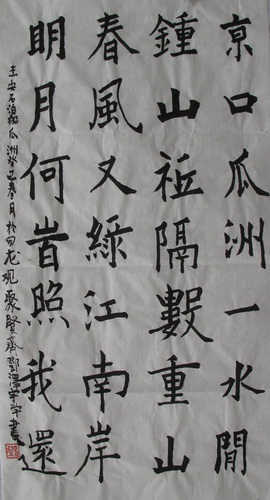 京口瓜洲一水間
鍾山祗隔數重山
春風又綠江南岸
明月何旹照我還
王安石泊船瓜洲癸巳春月於聚賢齋鄧澤宇書